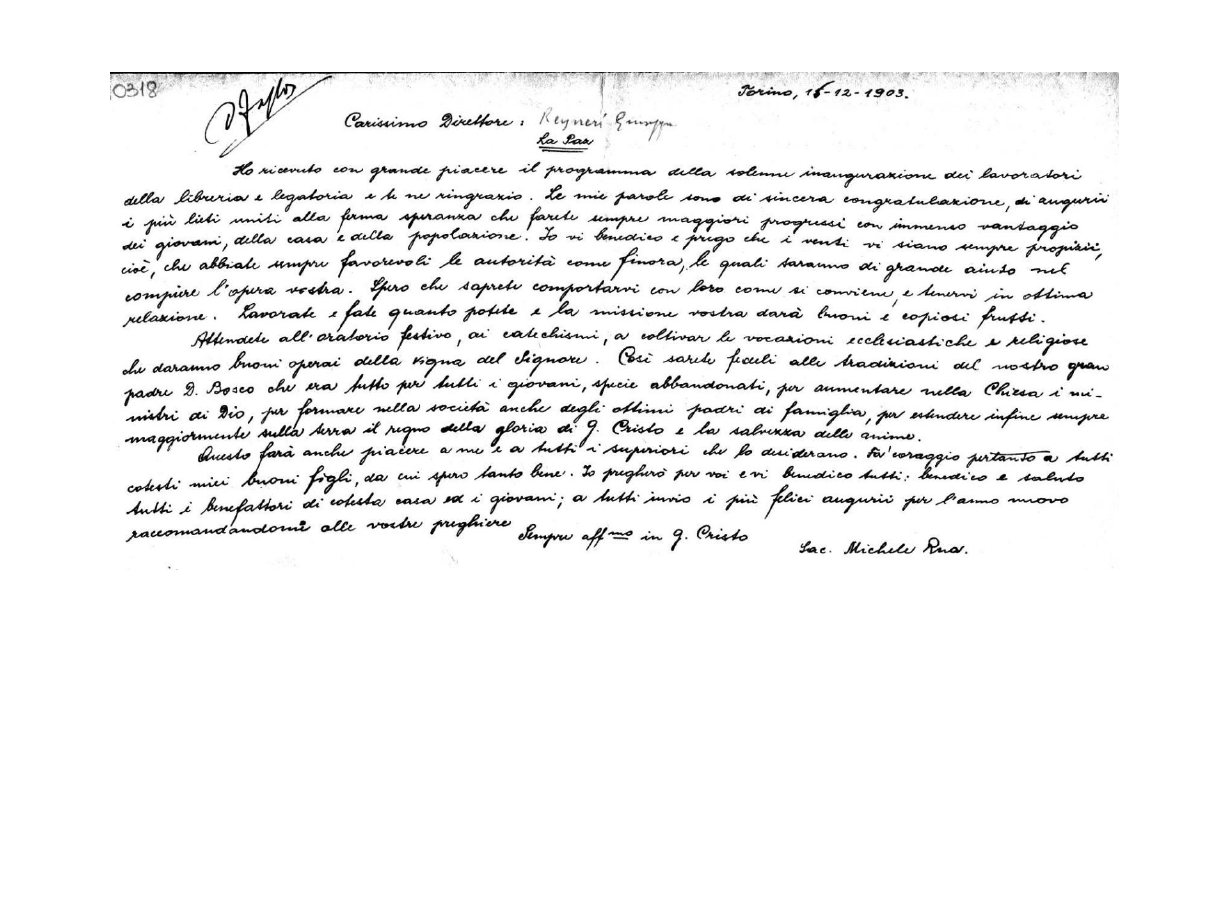 0318
Torino, 15-12-1903.
Carissimo Direttore: Reyneri Giuseppe
La Paz
Ho ricevuto con grande piacere il programma della solenne inaugurazione dei lavoratori
della libreria e legatoria e te ne ringrazio. Le mie parole sono di sincera congratulazione, di augurii
i più lieti uniti alla ferma speranza che farete sempre maggiori progressi con immenso vantaggio
dei giovani, della casa e della popolazione. Io vi benedico e prego che i venti vi siano sempre propizii,
cioè, che abbiate sempre favorevoli le autorità come finora, le quali saranno di grande aiuto nel
compiere l'opera vostra. Spero che saprete comportarvi con loro come si conviene, e tenervi in ottima
relazione. Lavorate e fate quanto potete e la missione vostra darà buoni e copiosi frutti.
Attendete all'oratorio festivo, ai catechismi, a coltivar le vocazioni ecclesiastiche e religiose
che daranno buoni operai della vigna del Signore. Così sarete fedeli alle tradizioni del nostro gran
padre D. Bosco che era tutto per tutti i giovani, specie abbandonati, per aumentare nella Chiesa i mi-
nistri di Dio, per formare nella società anche degli ottimi padri di famiglia, per estendere infine sempre
maggiormente sulla terra il regno della gloria di G. Cristo e la salvezza delle anime.
Questo farà anche piacere a me e a tutti i superiori che lo desiderano. Fa' coraggio pertanto a tutti
cotesti miei buoni figli, da cui spero tanto bene. Io pregherò per voi e vi benedico tutti; benedico e saluto
tutti i benefattori di cotesta casa ed i giovani; a tutti invio i più felici augurii per l'anno nuovo
raccomandandomi alle vostre preghiere
Sempre aff.mo in G. Cristo
Sac. Michele Rua.